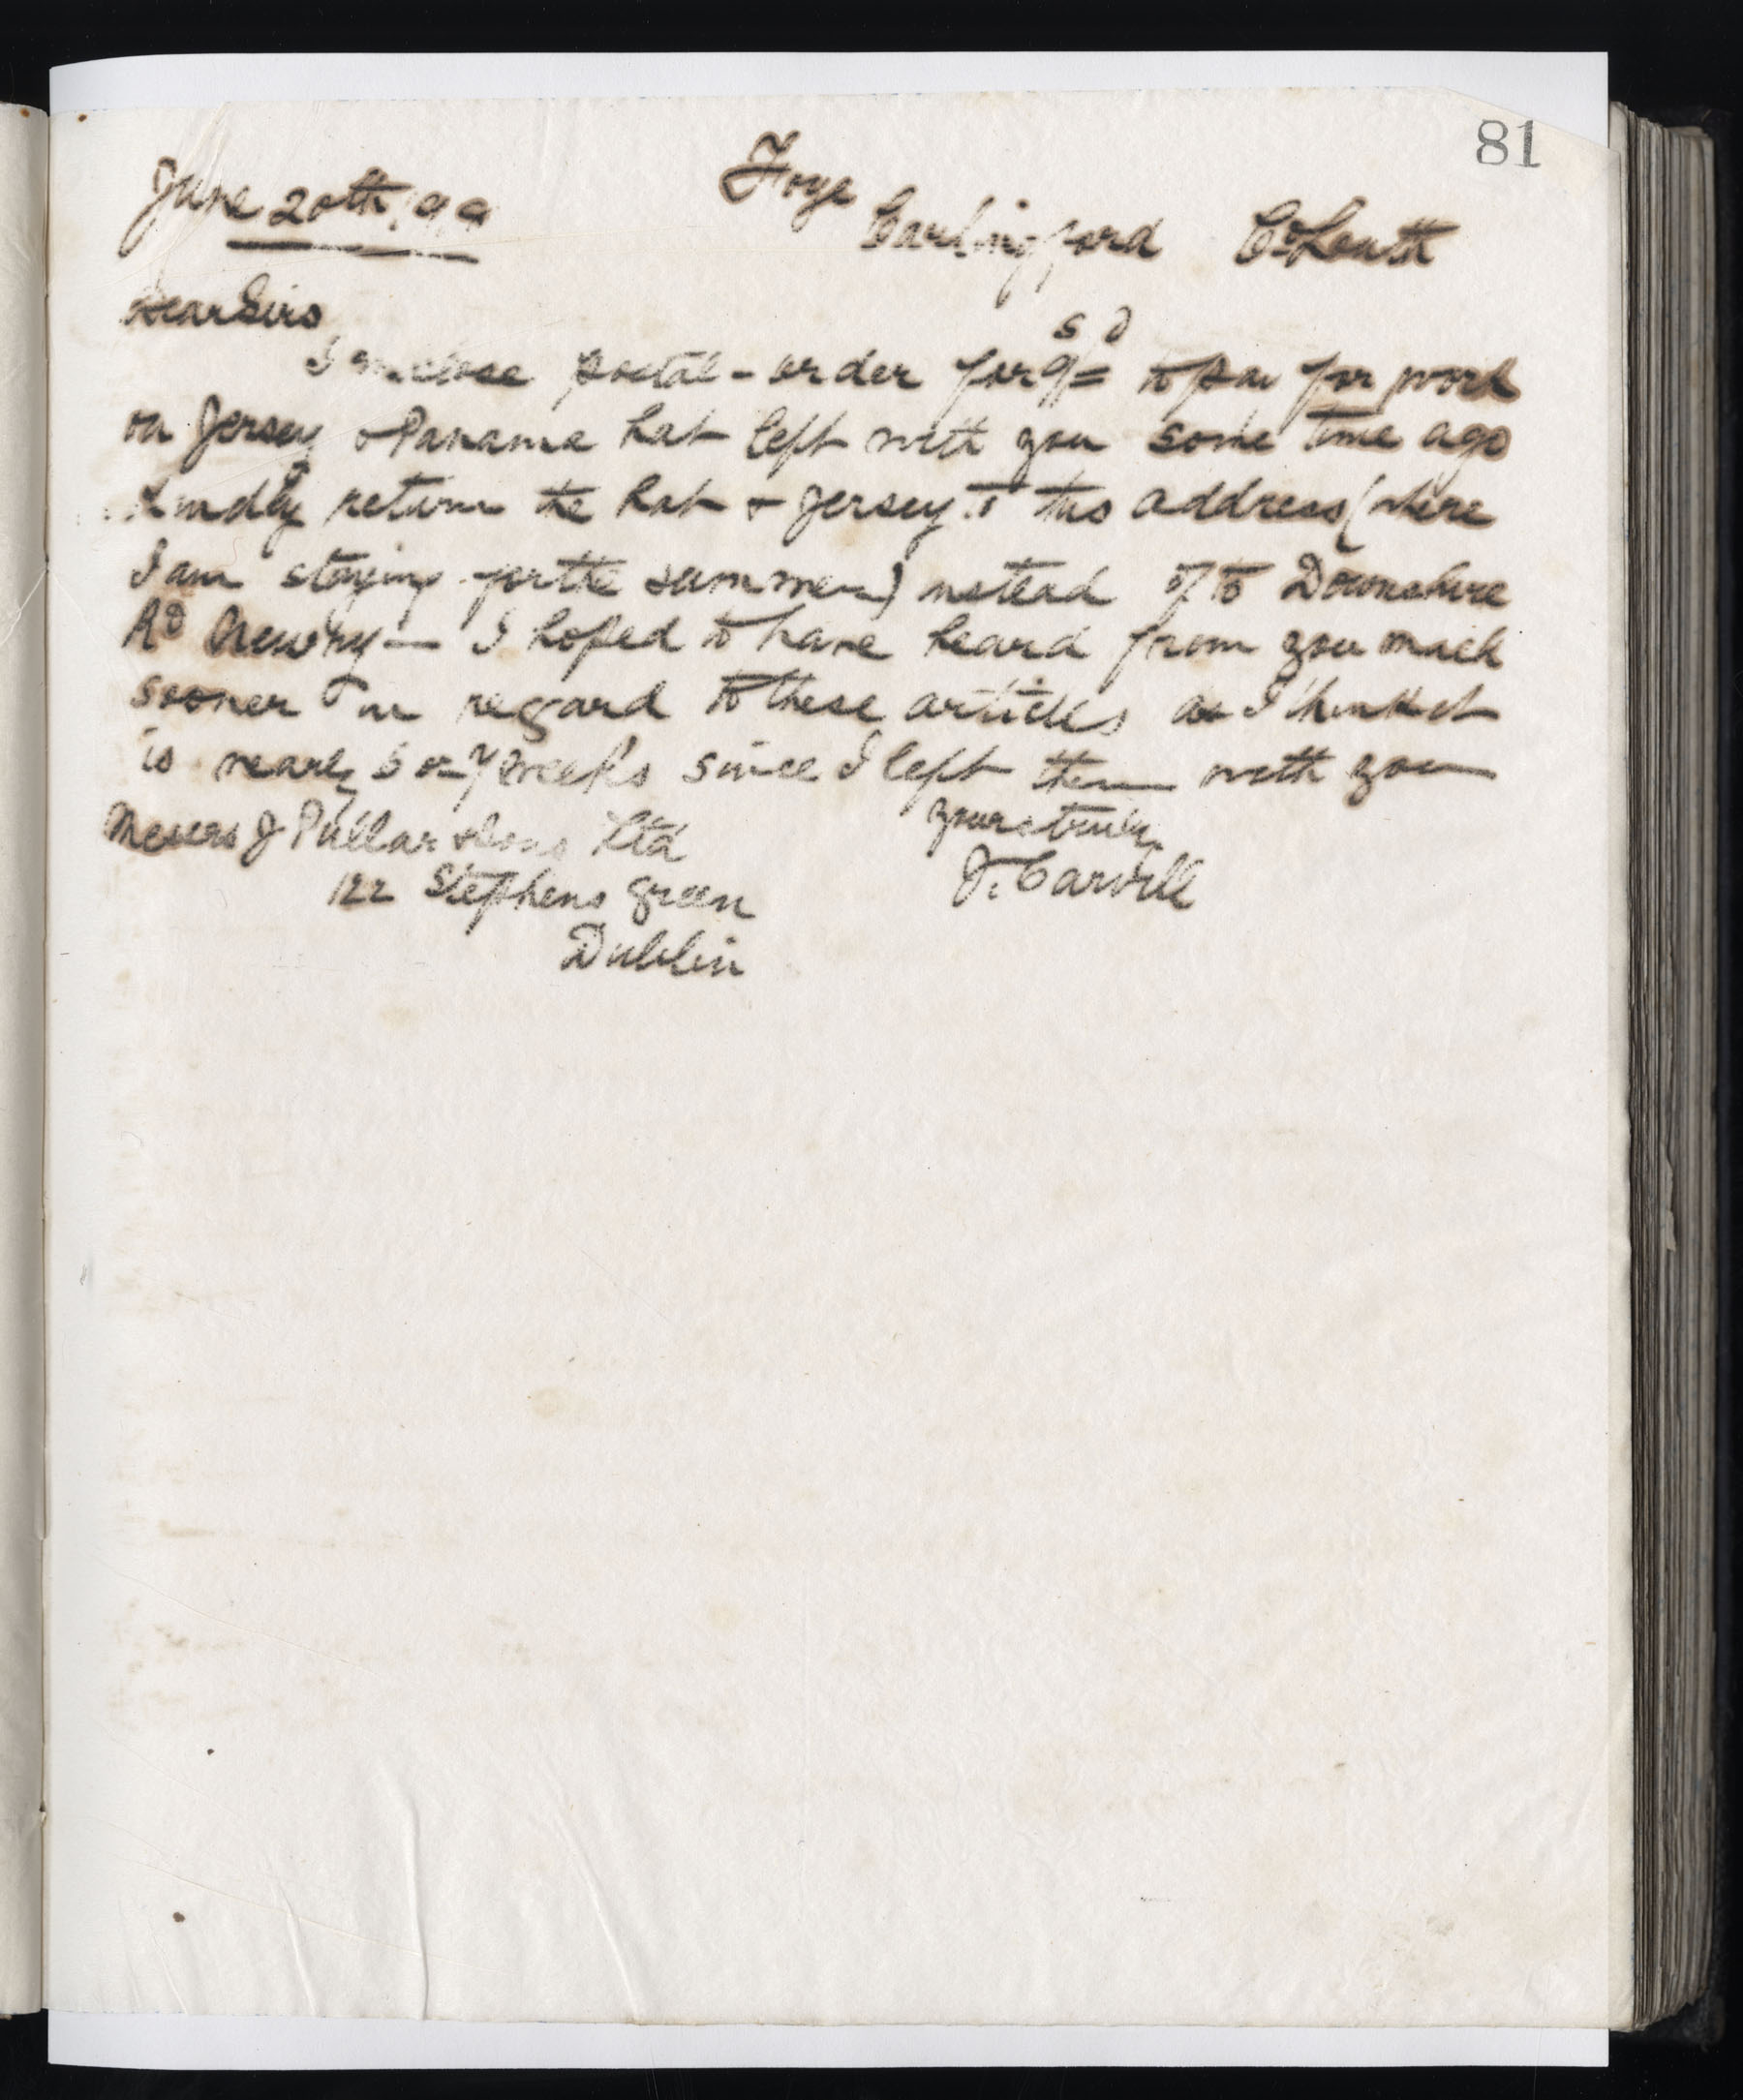 81
June 20th/99
Foye
Carlingford Co Louth
Dear Sirs
s d
I enclose postal-order for 9/= to pay for work
on Jersey & Panama hat left with you some time ago
Kindly return the hat & Jersey to this address (where
I am staying for the summer) instead of to Downshire
Rd Newry — I hoped to have heard from you much
sooner in regard to these articles as I think it
is nearly 6 or 7 weeks since I left them with you
yours truly
Messrs J Pullar & Sons Ltd
J. Carvill
122 Stephens Green
Dublin